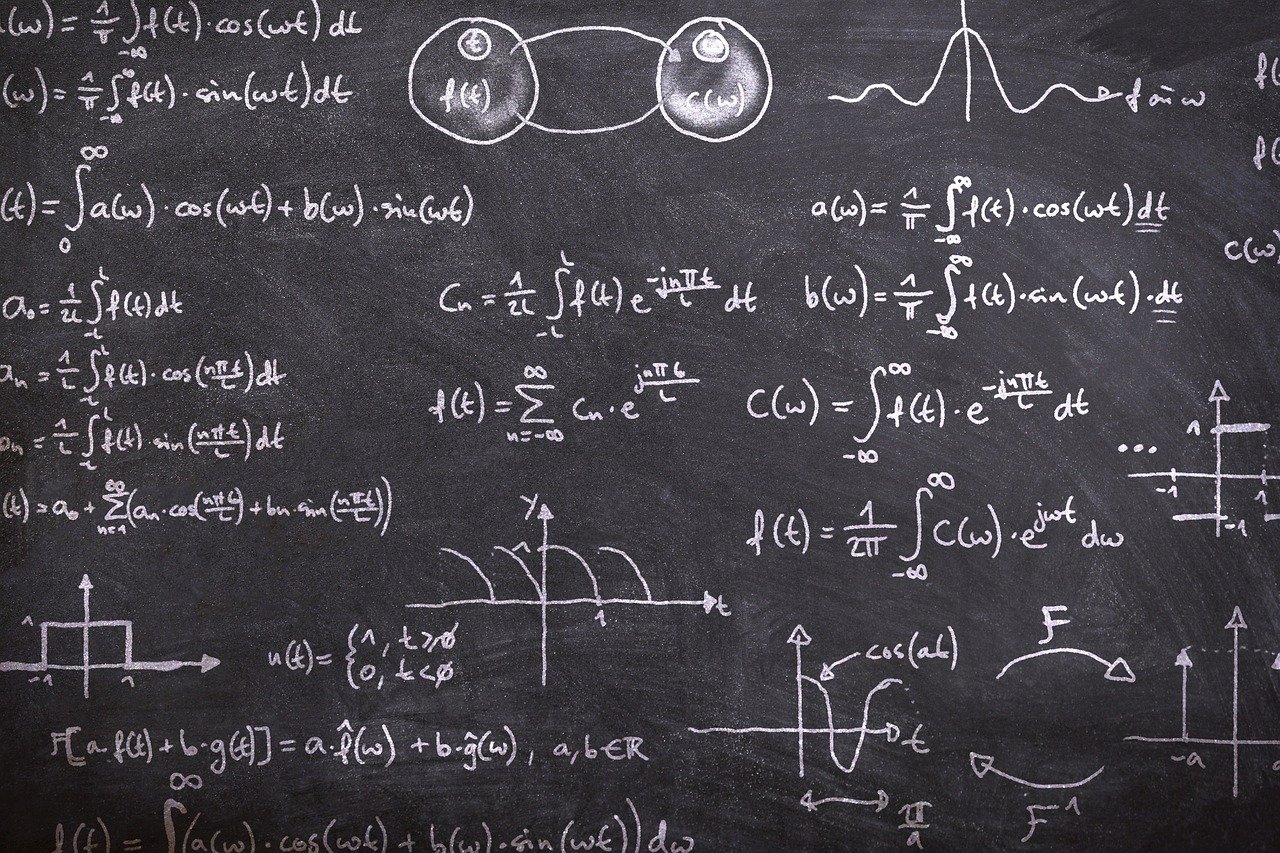 (ω) = 1/π ∫_{-∞} f(t)·cos(ωt) dt
(ω) = 1/π ∫_{-∞}^{∞} f(t)·sin(ωt) dt
t
f(t)
c(ω)
f in ω
f(
f(
(t) = ∫_0^∞ a(ω)·cos(ωt) + b(ω)·sin(ωt)
a(ω) = 1/π ∫_{-∞}^{∞} f(t)·cos(ωt) dt
c(ω)
a₀ = 1/2L ∫_{-L}^{L} f(t) dt
Cn = 1/2L ∫_{-L}^{L} f(t) e^{-jnπt/L} dt
b(ω) = 1/π ∫_{-∞}^{∞} f(t)·sin(ωt)·dt
an = 1/L ∫_{-L}^{L} f(t)·cos(nπt/L) dt
f(t) = Σ_{n=-∞}^{∞} Cn·e^{jnπt/L}
C(ω) = ∫_{-∞}^{∞} f(t)·e^{-jnπt/L} dt
bn = 1/L ∫_{-L}^{L} f(t)·sin(nπt/L) dt
... 1
-1 -1 1
(t) = a₀ + Σ_{n=1}^{∞} (an·cos(nπt/L) + bn·sin(nπt/L))
f(t) = 1/2π ∫_{-∞}^{∞} C(ω)·e^{jωt} dω
y
1
t
1
1
-1 1
u(t) = {1, t≥0
0, t<0
cos(at)
t
π/a
F
F⁻¹
-a a
F[a·f(t) + b·g(t)] = a·f̂(ω) + b·ĝ(ω), a,b∈ℝ
f(t) = ∫^∞ (a(ω)·cos(ωt) + b(ω)·sin(ωt)) dω